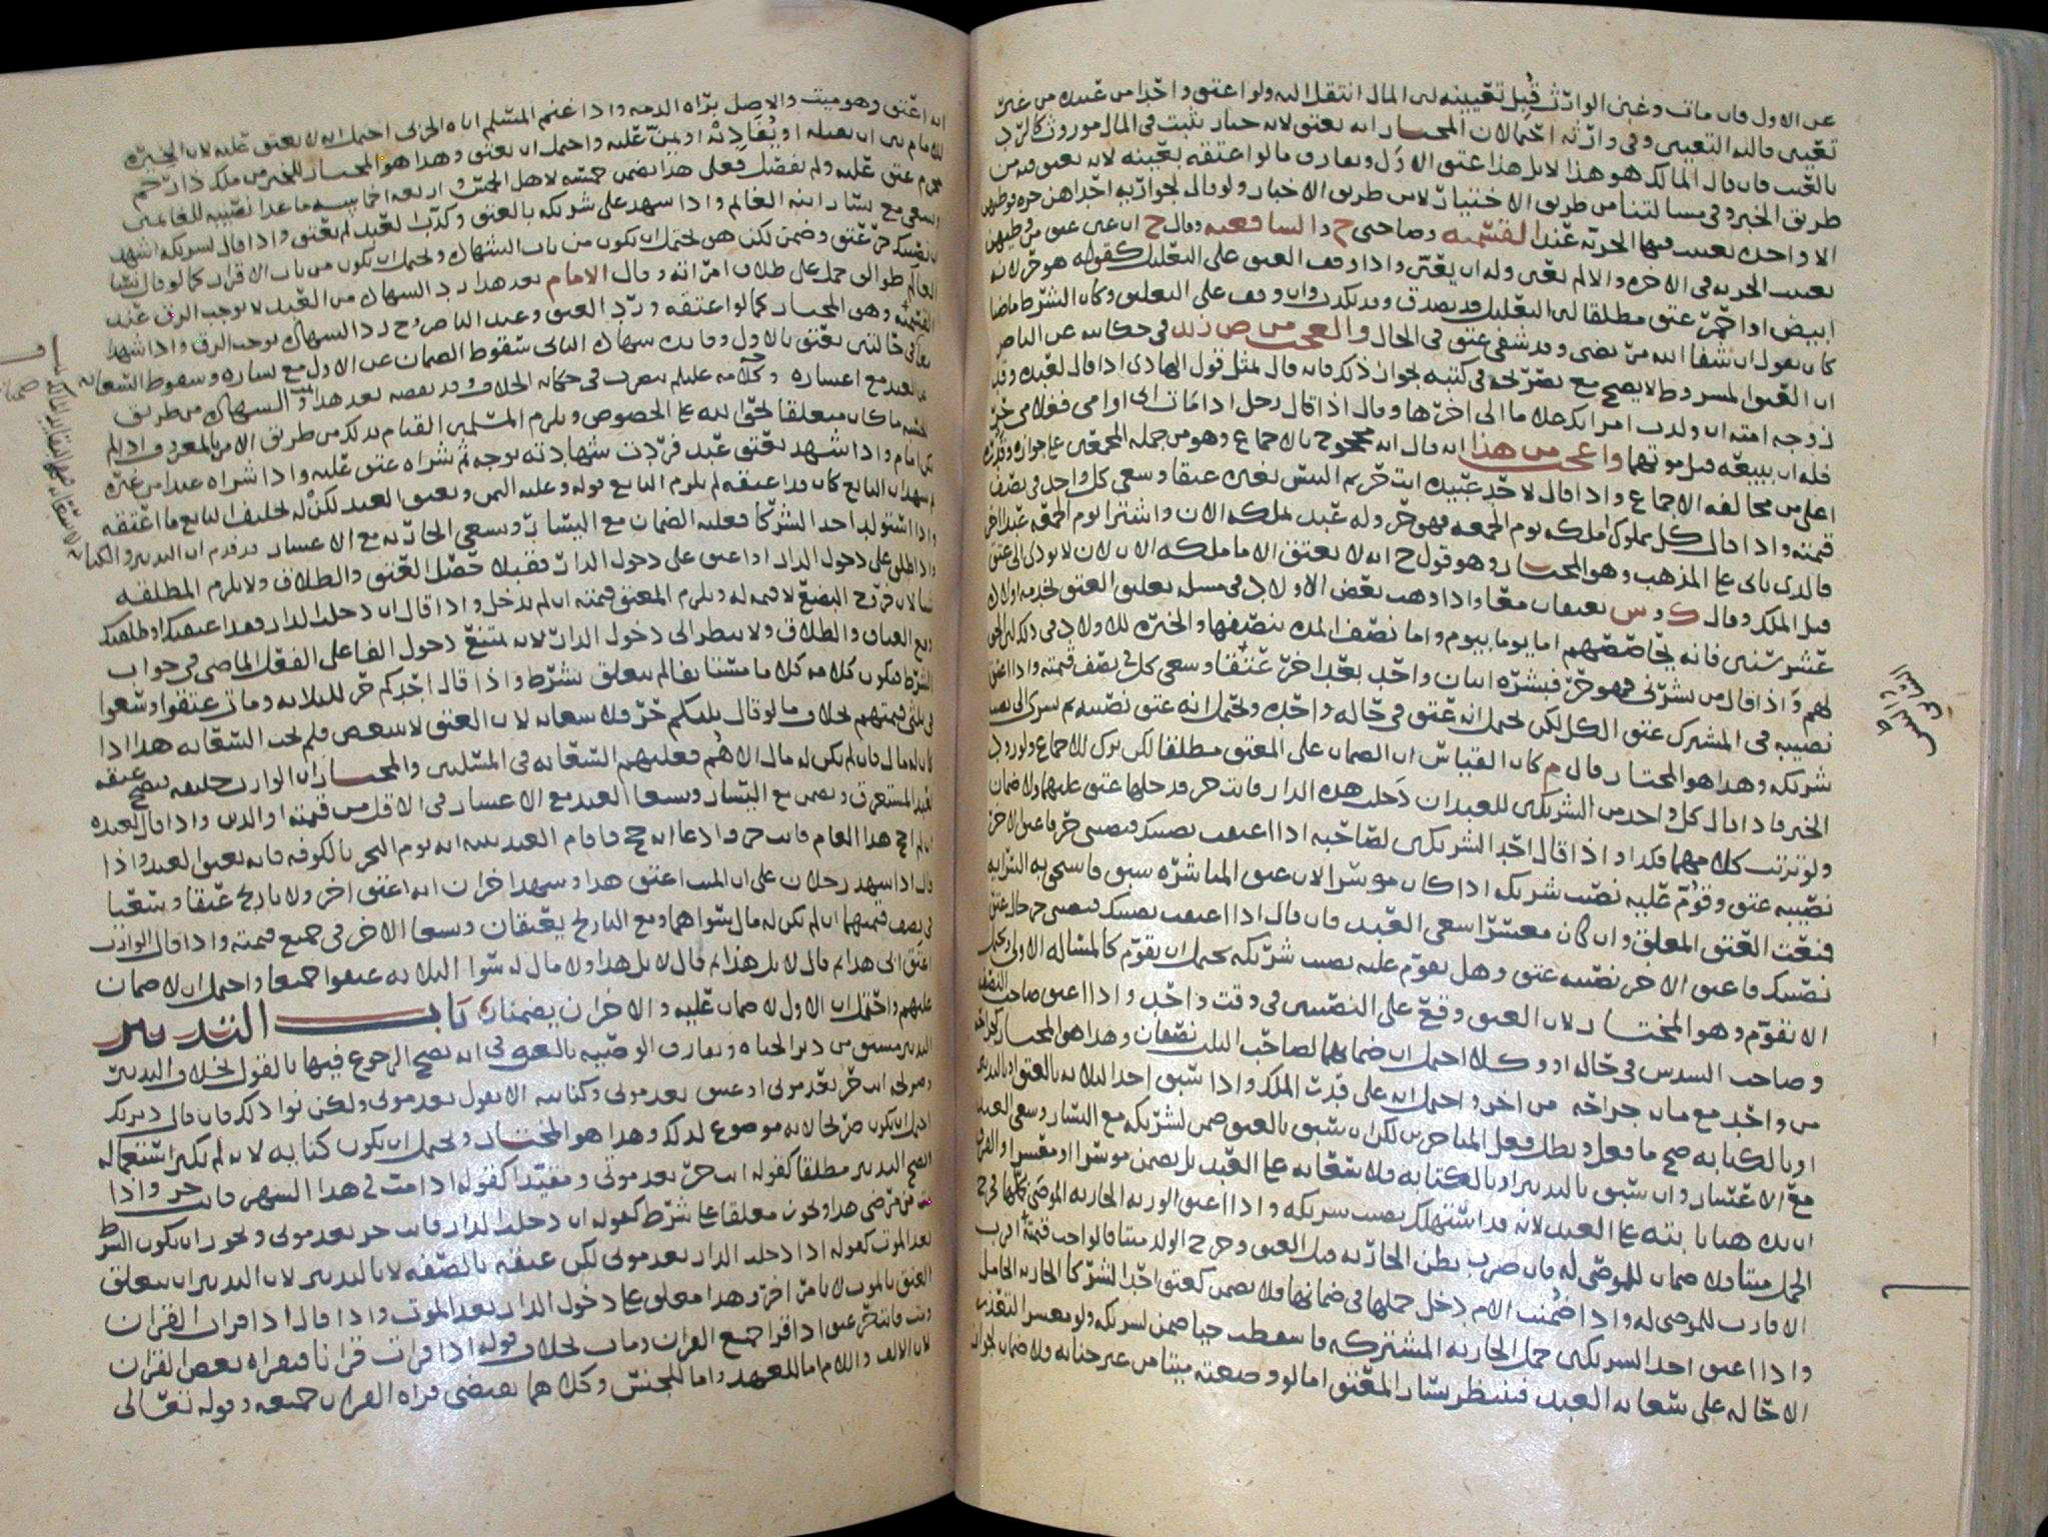 عن الاول فان مات وغبي الوارث قبل تعيينه لان المال انتقل اليه ولو اعتق واحدا من عبيده من غير
تعيين فاليه التعيين وفي وارثه احتمالان المختار انه يعتق لانه خيار يثبت في المال موروث كالرد
بالعيب فان قال المالك هو هذا لا بل هذا عتق الاول ويفارق ما لو اعتقه بعينه لانه يعتق
طريق الخبر وفي مسالتنا من طريق الاختيار لا من طريق الاخبار ولو قال لجواريه احداهن حره
الا واحده تعينت فيها الحريه عند القسميه وصاحبي ح والشافعيه وقال ح
تعينت الحريه في الاخره والا لم تعين وله ان يعين واذا وقف العتق على التعليل كقوله هو حر لانه
ابيض او احمر عتق مطلقا لان التعليل قد يصدق وقد يكذب وان وقف على التعليق وكان الشرط ماضيا
كان يقول ان شفا الله مريضي وقد شفي عتق في الحال والعجب من ص زيد في حكايته عن الناصر
ان العتق المشروط لا يصح مع تصريحه في كتبه بجواز ذلك فانه قال بمثل قول الهادي اذا قال لعبده وقد
زوجه امته ان ولدت امراتك غلاما الى اخرها وقال اذا قال رجل اذا مات ابي او امي فغلامي حر
فله ان يبيعه قبل موتهما واعجب من هذا انه قال انه محجوج بالاجماع وهو من جملة المجمعين على جوازه
اعلى من مخالفه الاجماع واذا قال لاحد عبيده انت حر بم التبس بغيره عتقا وسعى كل واحد في نصف
قيمته واذا قال كل مملوك املكه يوم الجمعه فهو حر وله عبد يملكه الان واشترا يوم الجمعه عبدا اخر
فالذي ياتي على المذهب وهو المختار وهو قول ح انه لا يعتق الا ما ملكه الان لان لا يودي الى عتق
قبل الملك وقال ك وس يعتقان معا واذا وهب بعض الاولاد في مسله تعليق العتق بخدمه اولاده
عشر سنين فانه يحاصصهم اما يوما بيوم واما نصف المده بنصفها والخيره للاولاد في ذلك
لهم واذا قال من بشرني فهو حر فبشره اثنان واحد بعد اخر عتقا وسعى كل في نصف قيمته واذا اعتق
نصيبه في المشترك عتق الكل لكن يحتمل انه عتق في حاله واحده ويحتمل انه عتق نصيبه ثم سرى الى نصيب
شريكه وهذا هو المختار قال م كان القياس ان الضمان على المعتق مطلقا لكن ترك للاجماع ولورود
الخبر فاذا قال كل واحد من الشريكين للعبد ان دخلت هذه الدار فانت حر فدخلها عتق عليهما ولا ضمان
ولو ترتب كلامهما فكذا واذا قال احد الشريكين لصاحبه اذا اعتقت نصيبك فنصيبي حر فاعتق الاخر
نصيبه عتق وقوم عليه نصيب شريكه اذا كان موسرا لان عتق المباشره سبق فاستحق به السرايه
فنعت العتق المعلق وان كان معسرا سعى العبد فان قال اذا اعتقت نصيبك فنصيبي حر حال عتق
نصيبك فاعتق الاخر نصيبه عتق وهل يقوم عليه نصيب شريكه يحتمل ان يقوم كالمساله الاولى ويحتمل
الا يقوم وهو المختار لان العتق وقع على النصيبين في وقت واحد واذا اعتق صاحب النصف
وصاحب السدس في حاله او وكلا احتمل ان ضمانهما لصاحب الثلث نصفان وهذا هو المختار
من واحد مع مات جراحه من اخر واحتمل انه على قدر الملك واذا سبق احد الثلاثه بالعتق او بالتدبير
او بالكتابه صح ما فعل وبطل فعل المتاخرين لكن ان سبق بالعتق ضمن لشريكه مع اليسار وسعى العبد
مع الاعسار وان سبق بالتدبير او بالكتابه فلا سعايه على العبد بل يضمن موسرا او معسرا والفرق
ان يده هنا باينه على العبد لانه قد استهلك نصيب شريكه واذا اعتق الورثه الجاريه الموصى بحملها
الحمل ميتا فلا ضمان للموصى له فان ضرب بطن الجاريه قبل العتق وخرج الولد ميتا فالواجب قيمته
الاقارب للموصى له واذا ضمنت الام دخل حملها في ضمانها فلا يضمن كعتق احد الشركا الجاريه الحامل
واذا اعتق احد الشريكين حمل الجاريه المشتركه فاسقطت حيا ضمن لشريكه ولو معسرا لتعذر
الاحاله على سعايه العبد فينتظر يسار المعتق اما لو وضعته ميتا من غير جنايه فلا ضمان
انه اعتق وهو ميت والاصل براه الذمه واذا غنم المسلم اباه الحربي احتمل انه لا يعتق عليه لان الخيره
للامام بين ان يقتله او يفاديه او يمن عليه واحتمل ان يعتق وهذا هو المختار للخبر من ملك ذا رحم
محرم عتق عليه ولم يفصل فعلى هذا يضمن خمسه لاهل الخمس واربعه اخماسه ما عدا نصيبه للغانمين
ويسعى مع يسار ابنه الغانم واذا شهد على شريكه بالعتق وكذب العبد لم يعتق واذا قال لشريكه اشهد
ان نصيبك حر عتق وضمن لكن هل يحتمل ان يكون من باب الشهاده ويحتمل ان يكون من باب الاقرار كما لو قال
العالم طوالق حمل على طلاق امراته وقال الامام بعد هذا رد الشهاده من العبد لا يوجب الرق عند
القسميه وهو المختار كما لو اعتقه ورد العتق وعند الناصر وح رد الشهاده يوجب الرق واذا شهد
في حالتين يعتق بالاول وفايده شهاده الثاني سقوط الضمان عن الاول مع يساره وسقوط السعايه
عن العبد مع اعساره وكلامه عليلم يتصرف في حكايه الخلاف وقد نقصه بعد هذا والشهاده من طريق
الحسبه ما كان متعلقا بحق الله على الخصوص ويلزم المسلمين القيام بذلك من طريق الامر بالمعروف واذا لم
يكن امام واذا شهد بعتق عبد فردت شهادته بوجه ثم شراه عتق عليه واذا شراه عبدا من غيره
ثم شهد ان البايع كان قد اعتقه لم يلزم البايع قوله وعليه الثمن ويعتق العبد لكن له تحليف البايع ما اعتقه
واذا استولد احد الشركا فعليه الضمان مع اليسار وسعي الجاريه مع الاعسار
واذا طلق على دخول الدار او اعتق على دخول الدار فقبلا حصل العتق والطلاق ولا يلزم المطلقه
شيا لان فرج البضع لا قيمه له ويلزم المعتق قيمته ان لم يدخل واذا قال ان دخلت الدار فقد اعتقتك او طلقتك
وقع العتاق والطلاق ولا ينظر الى دخول الدار لانه يمتنع دخول الفا على الفعل الماضي في جواب
الشرط فيكون كلامه كلاما مستانفا لم يتعلق بشرط واذا قال احدكم حر لثلاثه ومات عتقوا وسعوا
في ثلثي قيمتهم بخلاف ما لو قال ثلثكم حر فلا سعايه لان العتق لا يتبعض فلم تجب السعايه هذا اذا
كان له مال فان لم يكن له مال الا هم فعليهم السعايه في المسلتين والمختار ان الوارث خليفه فيصح عتقه
لعبد المستغرق ويضمن مع اليسار ويسعى العبد مع الاعسار في الاقل من قيمته او الدين واذا قال لعبده
ان لم احج هذا العام فانت حر وادعا انه حج فاقام العبد بينه انه يوم النحر بالكوفه فانه يعتق العبد واذا
قال اذا شهد رجلان على ان الميت اعتق هذا وشهد اخران انه اعتق اخر ولا تاريخ عتقا وسعيا
في نصف قيمتهما ان لم يكن له مال سواهما ومع التاريخ يعتقان ويسعى الاخر في جميع قيمته واذا قال الوارث
اعتق ابي هذا ثم قال لا بل هذا ثم قال لا بل هذا ولا مال له سوا الثلاثه عتقوا جميعا واحتمل ان لا ضمان
عليهم واحتمل ان الاول لا ضمان عليه والاخران يضمنان باب التدبير
التدبير مشتق من دبر الحياه ويفارق الوصيه بالعتق في انه يصح الرجوع فيها بالقول بخلاف التدبير
وصريحه انت حر بعد موتي او عتيق بعد موتي وكنايته الا يقول بعد موتي ولكن نوا ذلك فان قال دبرتك
احتمل ان يكون صريحا لانه موضوع لذلك وهذا هو المختار ويحتمل ان يكون كنايه لانه لم يكثر استعماله
ويصح التدبير مطلقا كقوله انت حر بعد موتي ومقيدا كقوله اذا مت في هذا الشهر فانت حر واذا
مت من مرضي هذا ونحوه معلقا على شرط كقوله ان دخلت الدار فانت حر بعد موتي ويجوز ان يكون الشرط
بعد الموت كقوله اذا دخلت الدار بعد موتي لكن عتقه بالصفه لا بالتدبير لان التدبير ان يتعلق
العتق بالموت لا بامر اخر وهذا معلق على دخول الدار بعد الموت واذا قال اذا قرات القران
ومت فانت حر عتق اذا قرا جميع القران ومات بخلاف قوله اذا قرات قرانا فبقراه بعض القران
لان الالف واللام اما للعهد واما للجنس وكلاهما يقتضي قراه القران جميعه وقوله تعالى